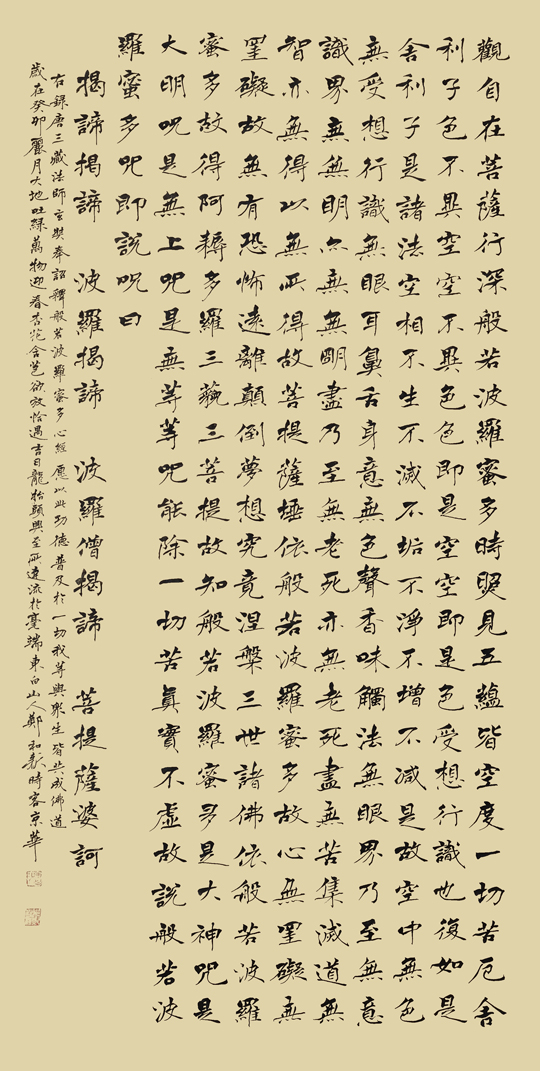 觀自在菩薩行深般若波羅蜜多時照見五蘊皆空度一切苦厄舍
利子色不異空空不異色色即是空空即是色受想行識也復如是
舍利子是諸法空相不生不滅不垢不淨不增不減是故空中無色
無受想行識無眼耳鼻舌身意無色聲香味觸法無眼界乃至無意
識界無無明亦無無明盡乃至無老死亦無老死盡無苦集滅道無
智亦無得以無所得故菩提薩埵依般若波羅蜜多故心無罣礙無
罣礙故無有恐怖遠離顛倒夢想究竟涅槃三世諸佛依般若波羅
蜜多故得阿耨多羅三藐三菩提故知般若波羅蜜多是大神咒是
大明咒是無上咒是無等等咒能除一切苦真實不虛故說般若波
羅蜜多咒即說咒曰
揭諦揭諦 波羅揭諦 波羅僧揭諦 菩提薩婆訶
右錄唐三藏法師玄奘奉詔釋般若波羅蜜多心經應以此功德普及於一切我等與眾生皆共成佛道
歲在癸卯麗月大地吐綠萬物迎春杏花含苞欲放恰遇吉日龍抬頭興至所達流於毫端東白山人鄭和時客京華